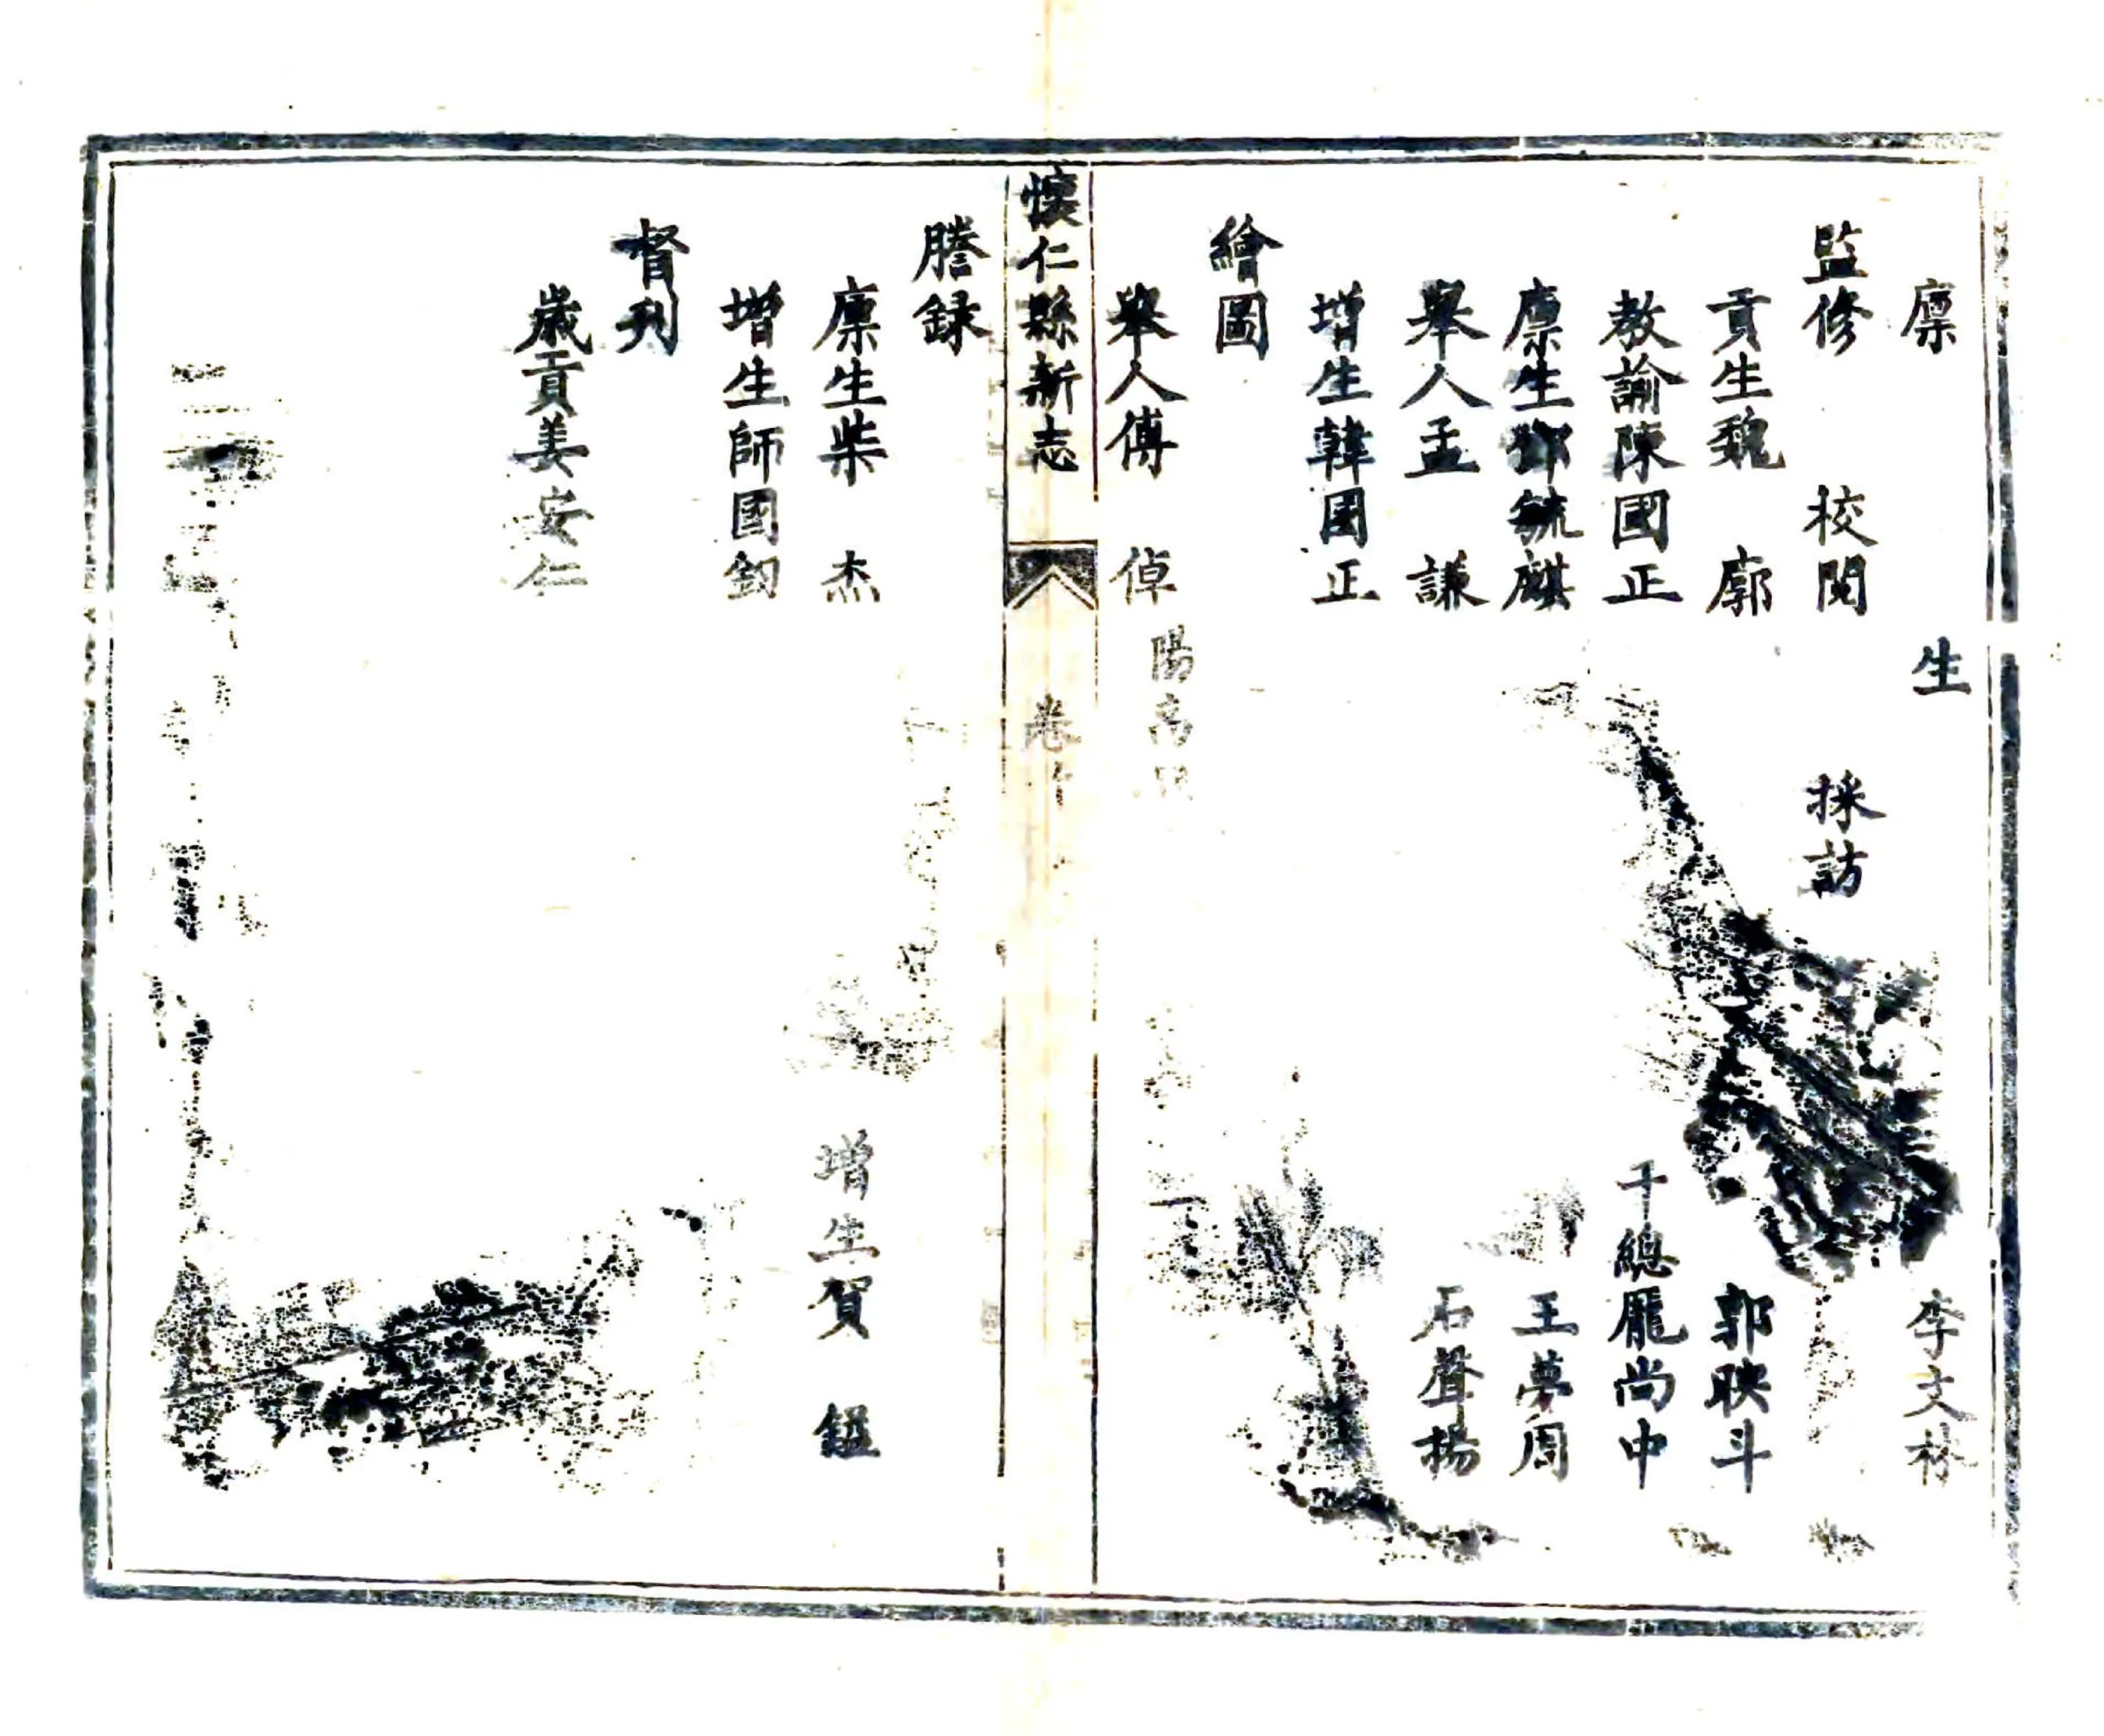 廪 生 李文林
監修 校閱 採訪
貢生魏 廓 郭映斗
教諭陳國正 千總龎尚中
廪生鄧毓麒 王夢周
舉人孟 謙 石聲揚
增生韓國正
繪圖
舉人傅 倬 陽高
懷仁縣新志 卷
謄録
廪生柴 杰 增生賀
增生師國鈞
督刋
歲貢姜安仁